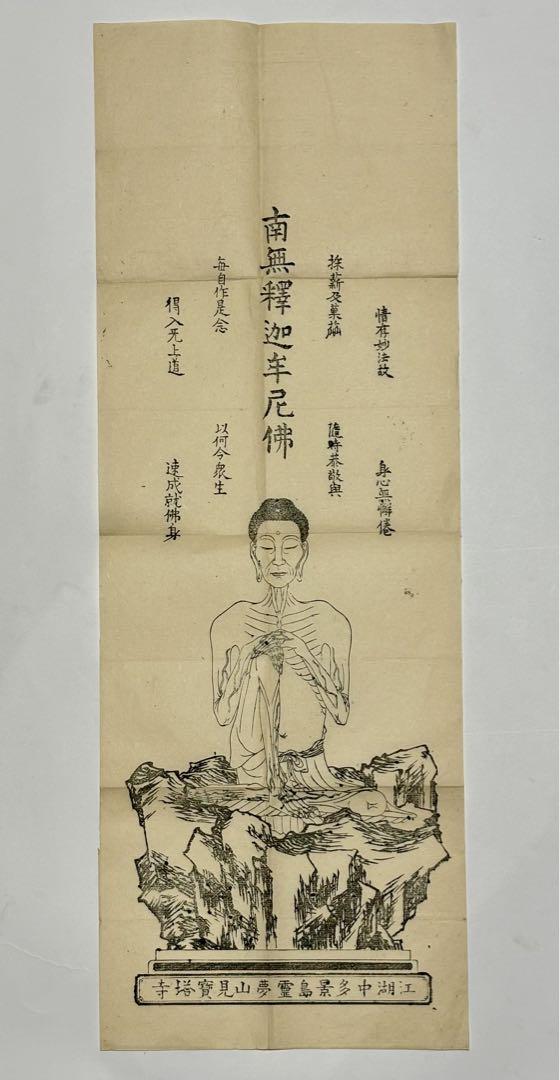 情存妙法故
身心無懈倦
採薪及菓蓏
隨時恭敬與
南無釋迦牟尼佛
每自作是念
以何令衆生
得入无上道
速成就佛身
江湖中多景島靈夢山見寶塔寺